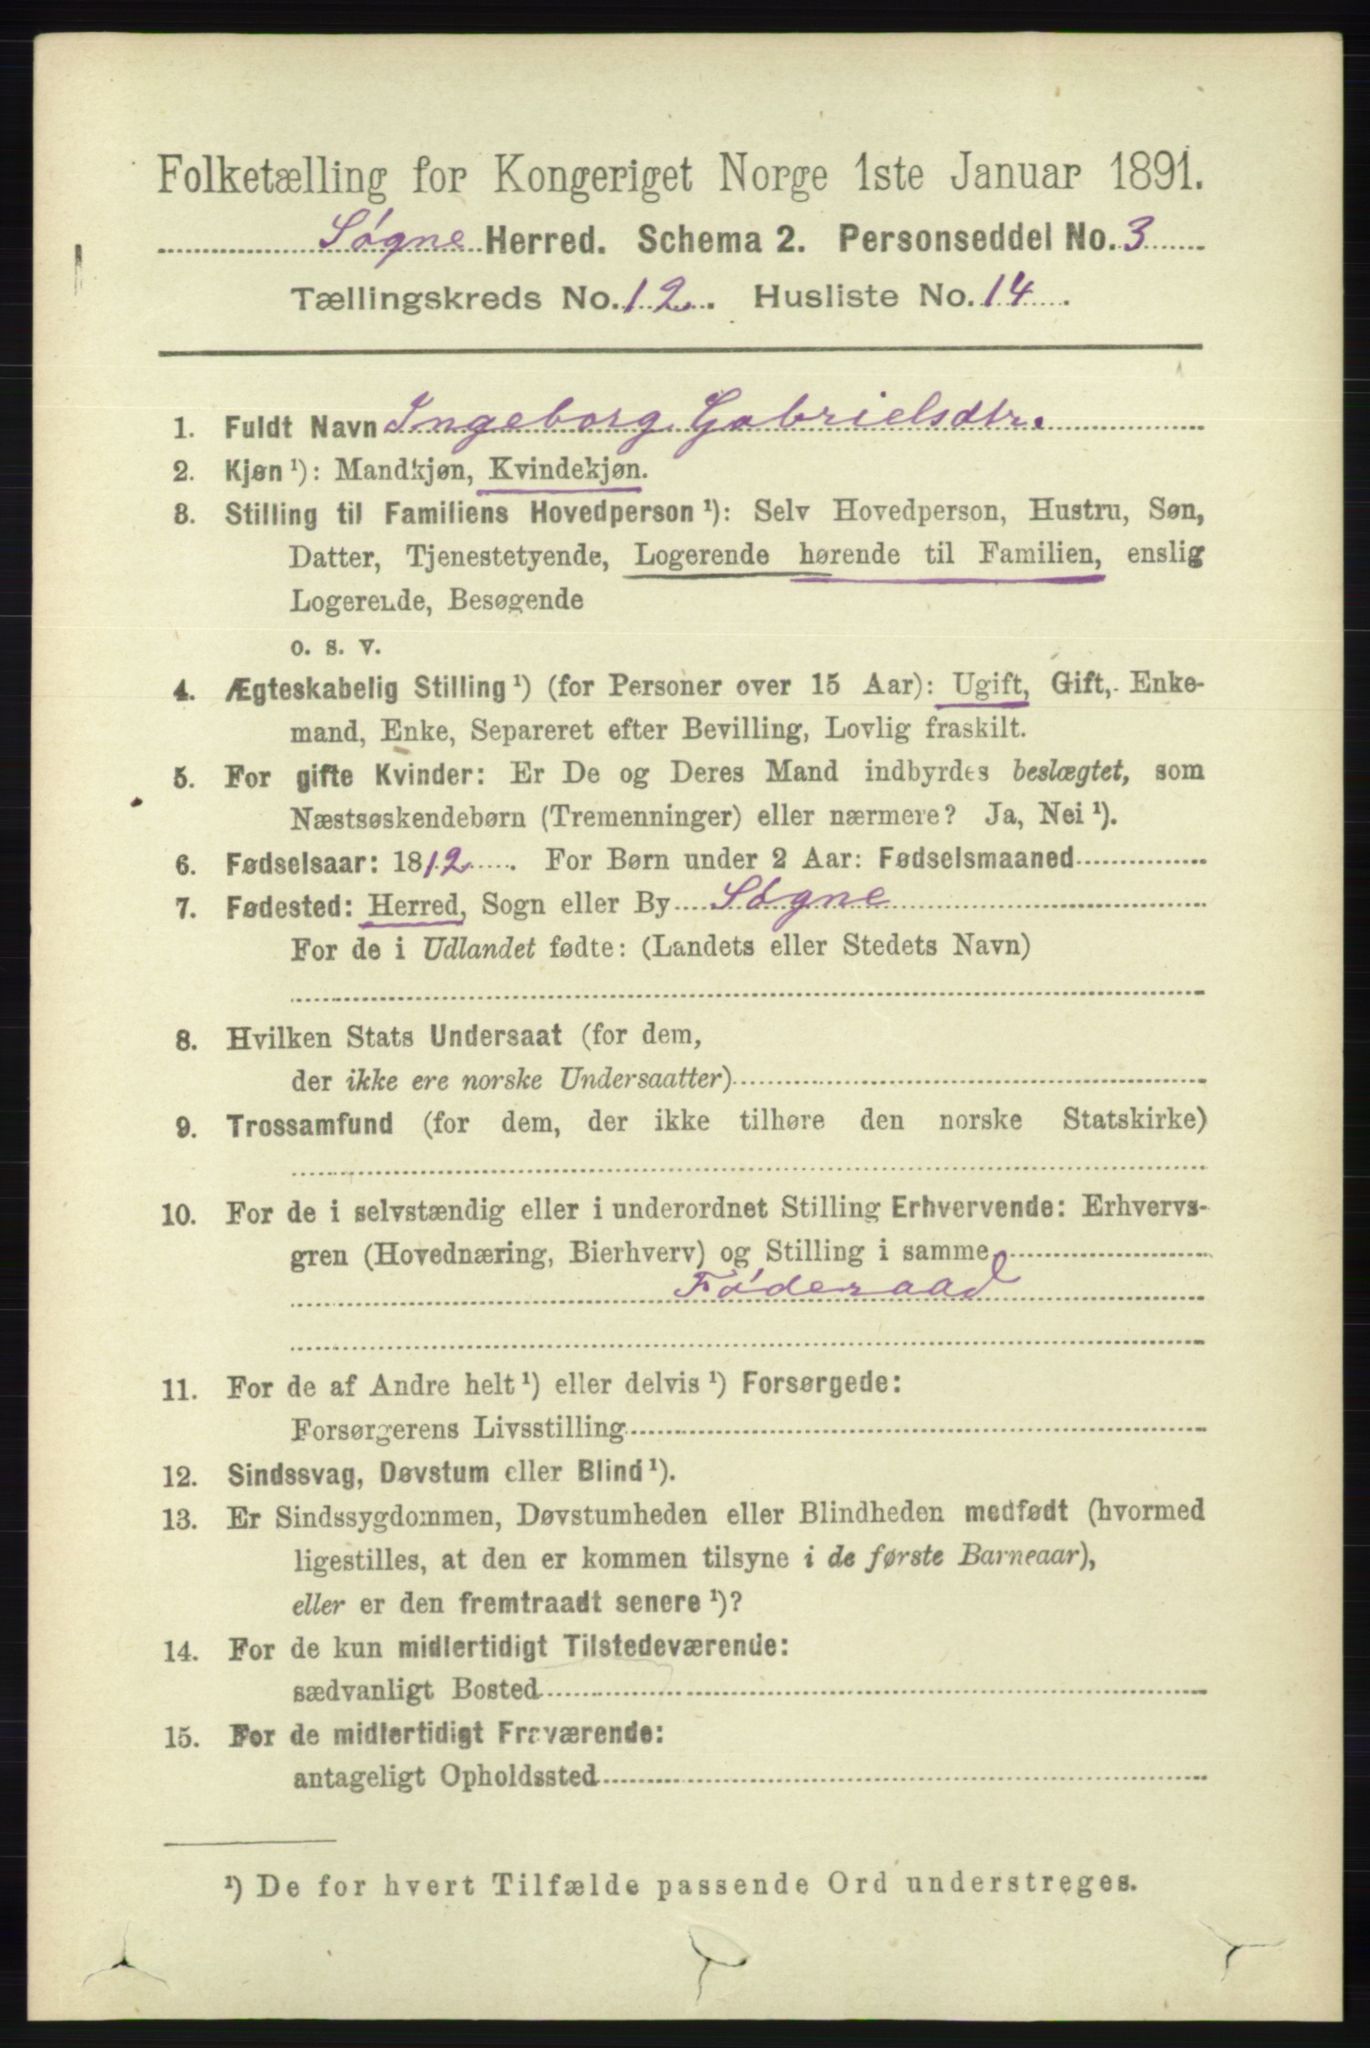 Folketælling for Kongeriget Norge 1ste Januar 1891.
Søgne Herred. Schema 2. Personseddel No. 3
Tællingskreds No. 12. Husliste No. 14.
1. Fuldt Navn Ingeborg Gabrielsdtr.
2. Kjøn ¹): Mandkjøn, Kvindekjøn.
3. Stilling til Familiens Hovedperson ¹): Selv Hovedperson, Hustru, Søn,
Datter, Tjenestetyende, Logerende hørende til Familien, enslig
Logerende, Besøgende
o. s. v.
4. Ægteskabelig Stilling ¹) (for Personer over 15 Aar): Ugift, Gift, Enke-
mand, Enke, Separeret efter Bevilling, Lovlig fraskilt.
5. For gifte Kvinder: Er De og Deres Mand indbyrdes beslægtet, som
Næstsøskendebørn (Tremenninger) eller nærmere? Ja, Nei ¹).
6. Fødselsaar: 1812. For Børn under 2 Aar: Fødselsmaaned
7. Fødested: Herred, Sogn eller By Søgne
For de i Udlandet fødte: (Landets eller Stedets Navn)
8. Hvilken Stats Undersaat (for dem,
der ikke ere norske Undersaatter)
9. Trossamfund (for dem, der ikke tilhøre den norske Statskirke)
10. For de i selvstændig eller i underordnet Stilling Erhvervende: Erhvervs-
gren (Hovednæring, Bierhverv) og Stilling i samme
Føderaad
11. For de af Andre helt ¹) eller delvis ¹) Forsørgede:
Forsørgerens Livsstilling
12. Sindssvag, Døvstum eller Blind ¹).
13. Er Sindssygdommen, Døvstumheden eller Blindheden medfødt (hvormed
ligestilles, at den er kommen tilsyne i de første Barneaar),
eller er den fremtraadt senere ¹)?
14. For de kun midlertidigt Tilstedeværende:
sædvanligt Bosted
15. For de midlertidigt Fraværende:
antageligt Opholdssted
¹) De for hvert Tilfælde passende Ord understreges.